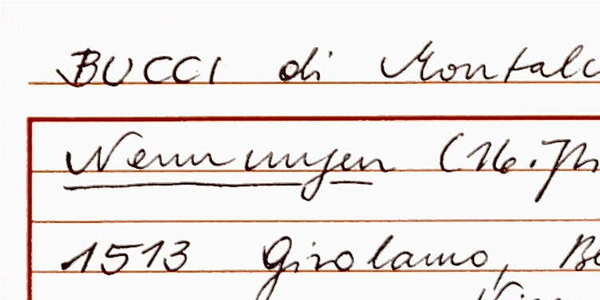 BUCCI di Montalc
Nennungen (16. Jh
1513 Girolamo, Be